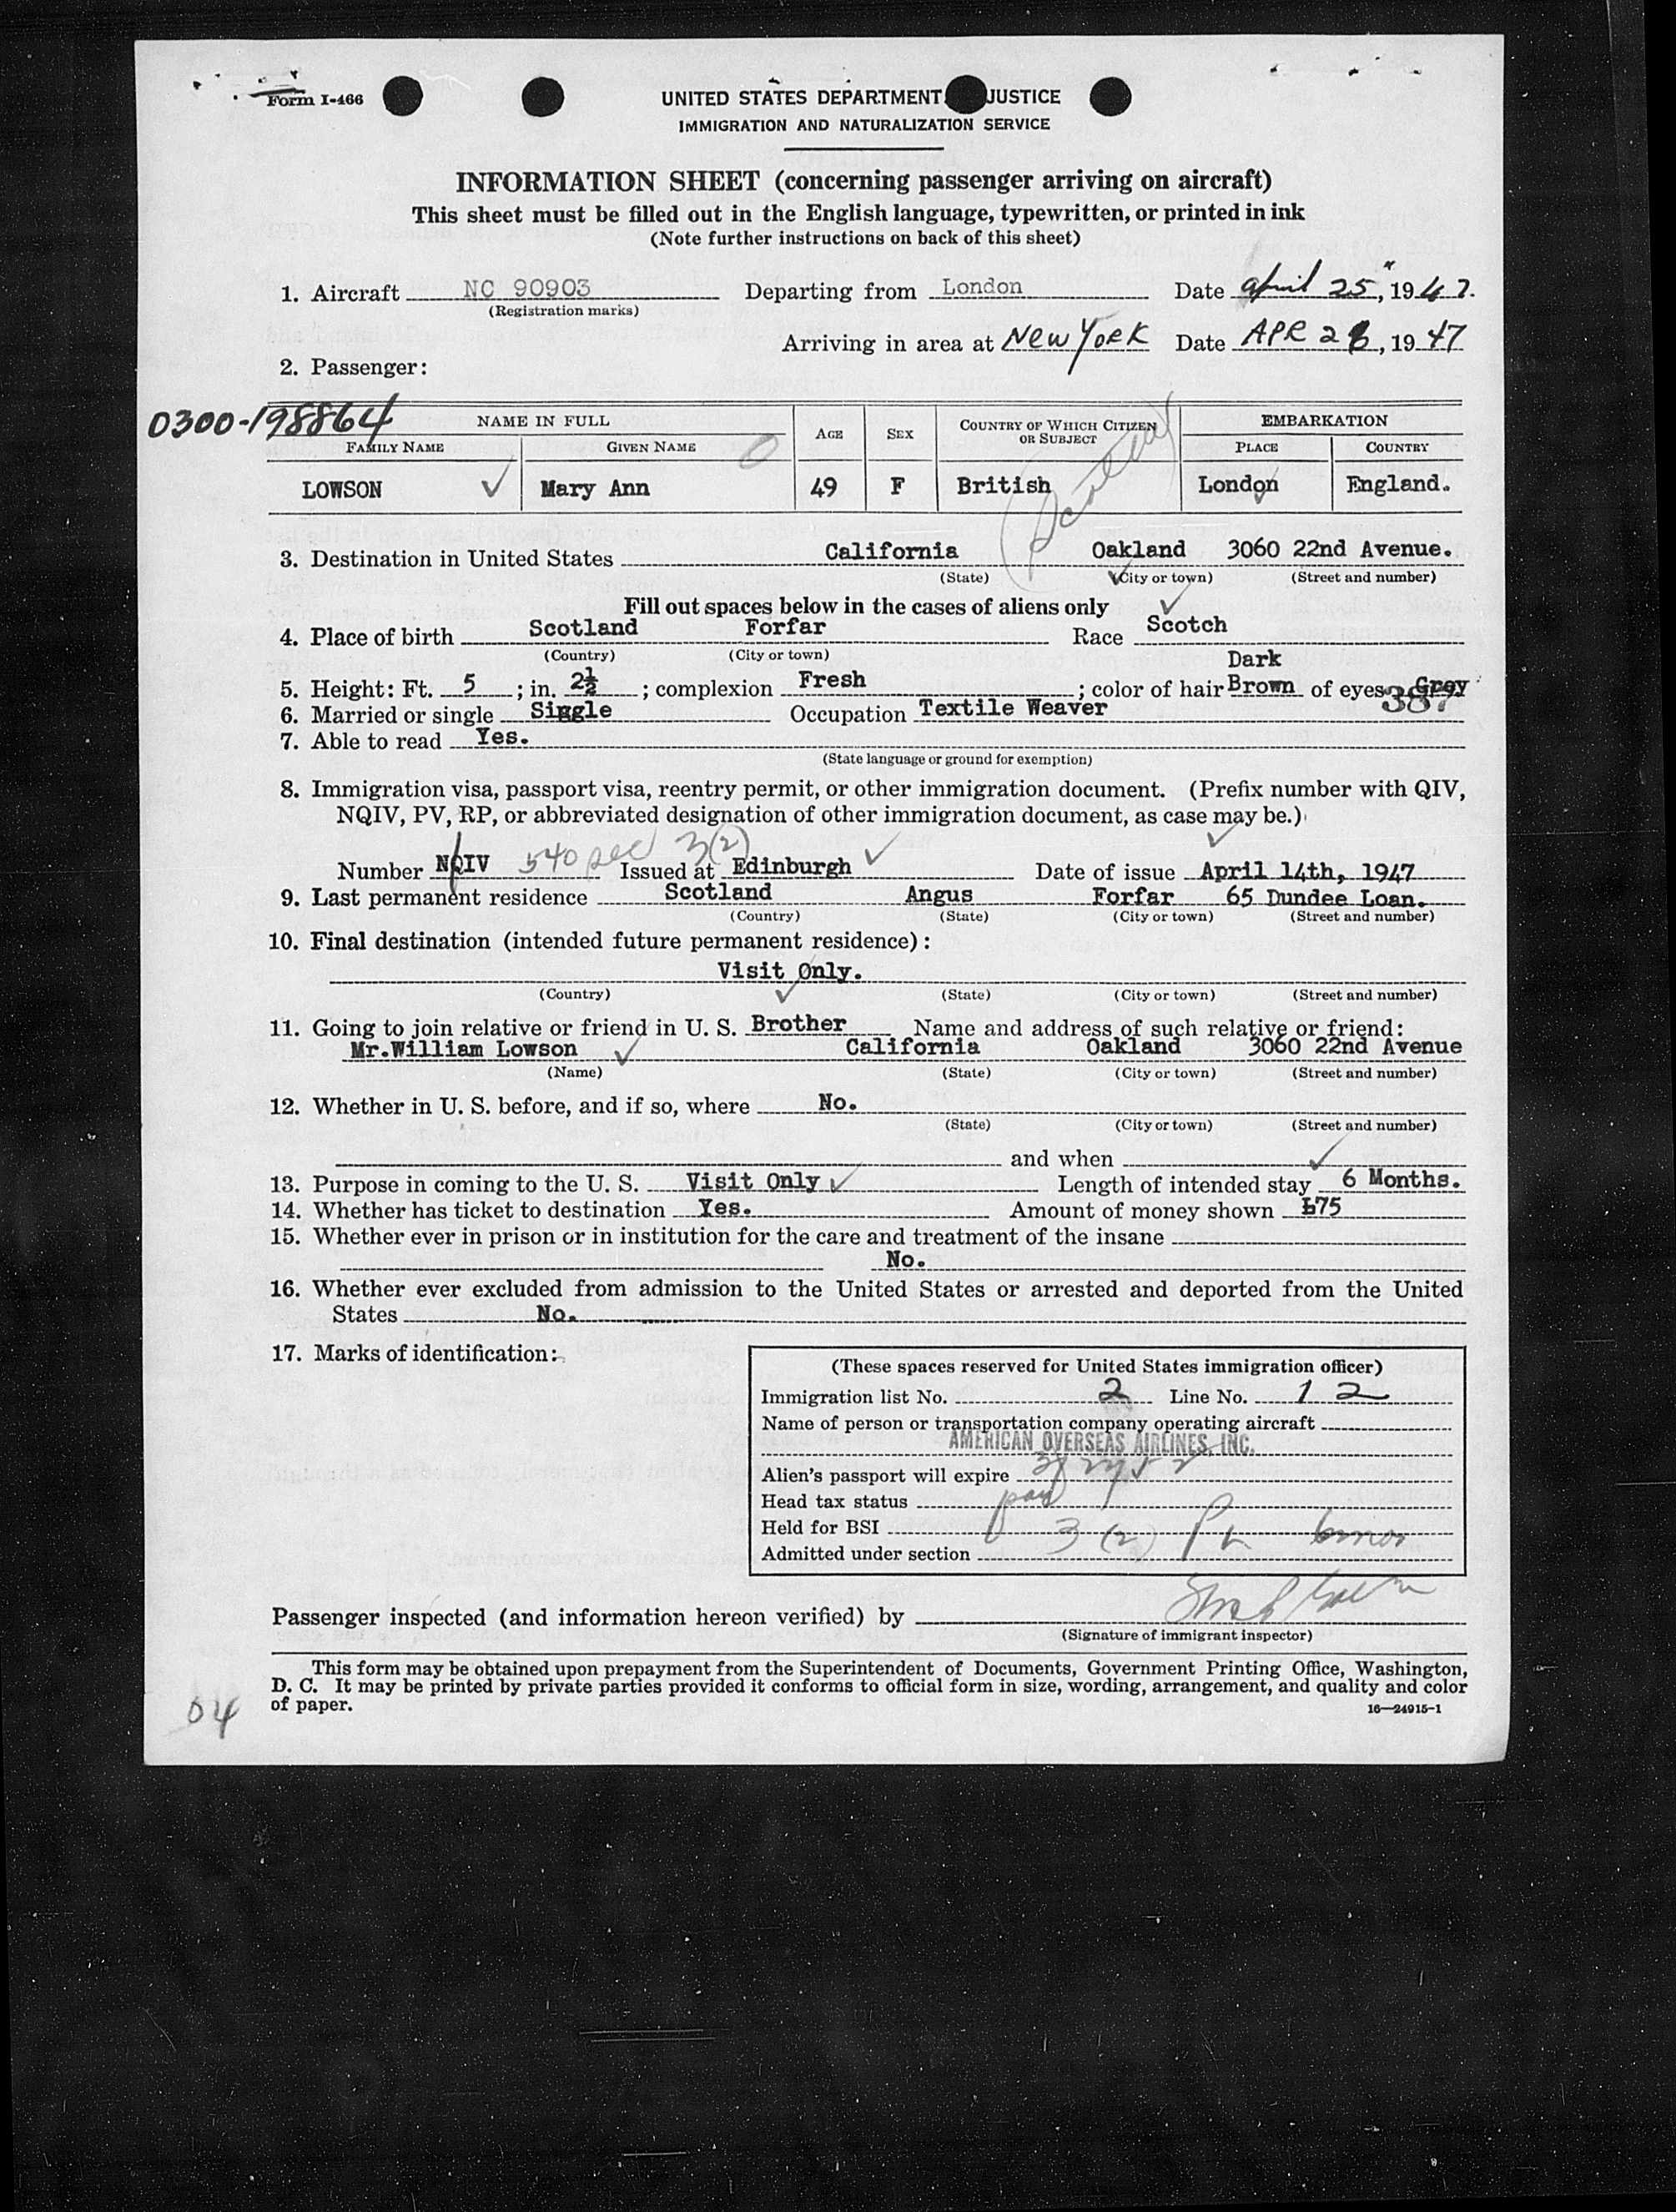 Form I-466
UNITED STATES DEPARTMENT JUSTICE
IMMIGRATION AND NATURALIZATION SERVICE
INFORMATION SHEET (concerning passenger arriving on aircraft)
This sheet must be filled out in the English language, typewritten, or printed in ink
(Note further instructions on back of this sheet)
1. Aircraft NC 90903 Departing from London Date April 25", 1947.
(Registration marks)
Arriving in area at New York Date APR 26, 1947
2. Passenger:
0300-198864
NAME IN FULL AGE SEX COUNTRY OF WHICH CITIZEN OR SUBJECT EMBARKATION
FAMILY NAME GIVEN NAME PLACE COUNTRY
LOWSON Mary Ann 49 F British London England.
(Scotland)
3. Destination in United States California Oakland 3060 22nd Avenue.
(State) (City or town) (Street and number)
Fill out spaces below in the cases of aliens only
4. Place of birth Scotland Forfar Race Scotch
(Country) (City or town)
5. Height: Ft. 5 ; in. 2½ ; complexion Fresh ; color of hair Dark Brown of eyes Grey
387
6. Married or single Single Occupation Textile Weaver
7. Able to read Yes.
(State language or ground for exemption)
8. Immigration visa, passport visa, reentry permit, or other immigration document. (Prefix number with QIV,
NQIV, PV, RP, or abbreviated designation of other immigration document, as case may be.)
Number NQIV 540 sec 3(2) Issued at Edinburgh Date of issue April 14th, 1947
9. Last permanent residence Scotland Angus Forfar 65 Dundee Loan.
(Country) (State) (City or town) (Street and number)
10. Final destination (intended future permanent residence):
Visit Only.
(Country) (State) (City or town) (Street and number)
11. Going to join relative or friend in U. S. Brother Name and address of such relative or friend:
Mr.William Lowson California Oakland 3060 22nd Avenue
(Name) (State) (City or town) (Street and number)
12. Whether in U. S. before, and if so, where No.
(State) (City or town) (Street and number)
and when
13. Purpose in coming to the U. S. Visit Only Length of intended stay 6 Months.
14. Whether has ticket to destination Yes. Amount of money shown £75
15. Whether ever in prison or in institution for the care and treatment of the insane
No.
16. Whether ever excluded from admission to the United States or arrested and deported from the United
States No.
17. Marks of identification:
(These spaces reserved for United States immigration officer)
Immigration list No. 2 Line No. 12
Name of person or transportation company operating aircraft
AMERICAN OVERSEAS AIRLINES, INC.
Alien's passport will expire
Head tax status paid
Held for BSI
Admitted under section 3 (2) 6 mos
Passenger inspected (and information hereon verified) by
(Signature of immigrant inspector)
This form may be obtained upon prepayment from the Superintendent of Documents, Government Printing Office, Washington,
D. C. It may be printed by private parties provided it conforms to official form in size, wording, arrangement, and quality and color
of paper.
16—24915-1
04